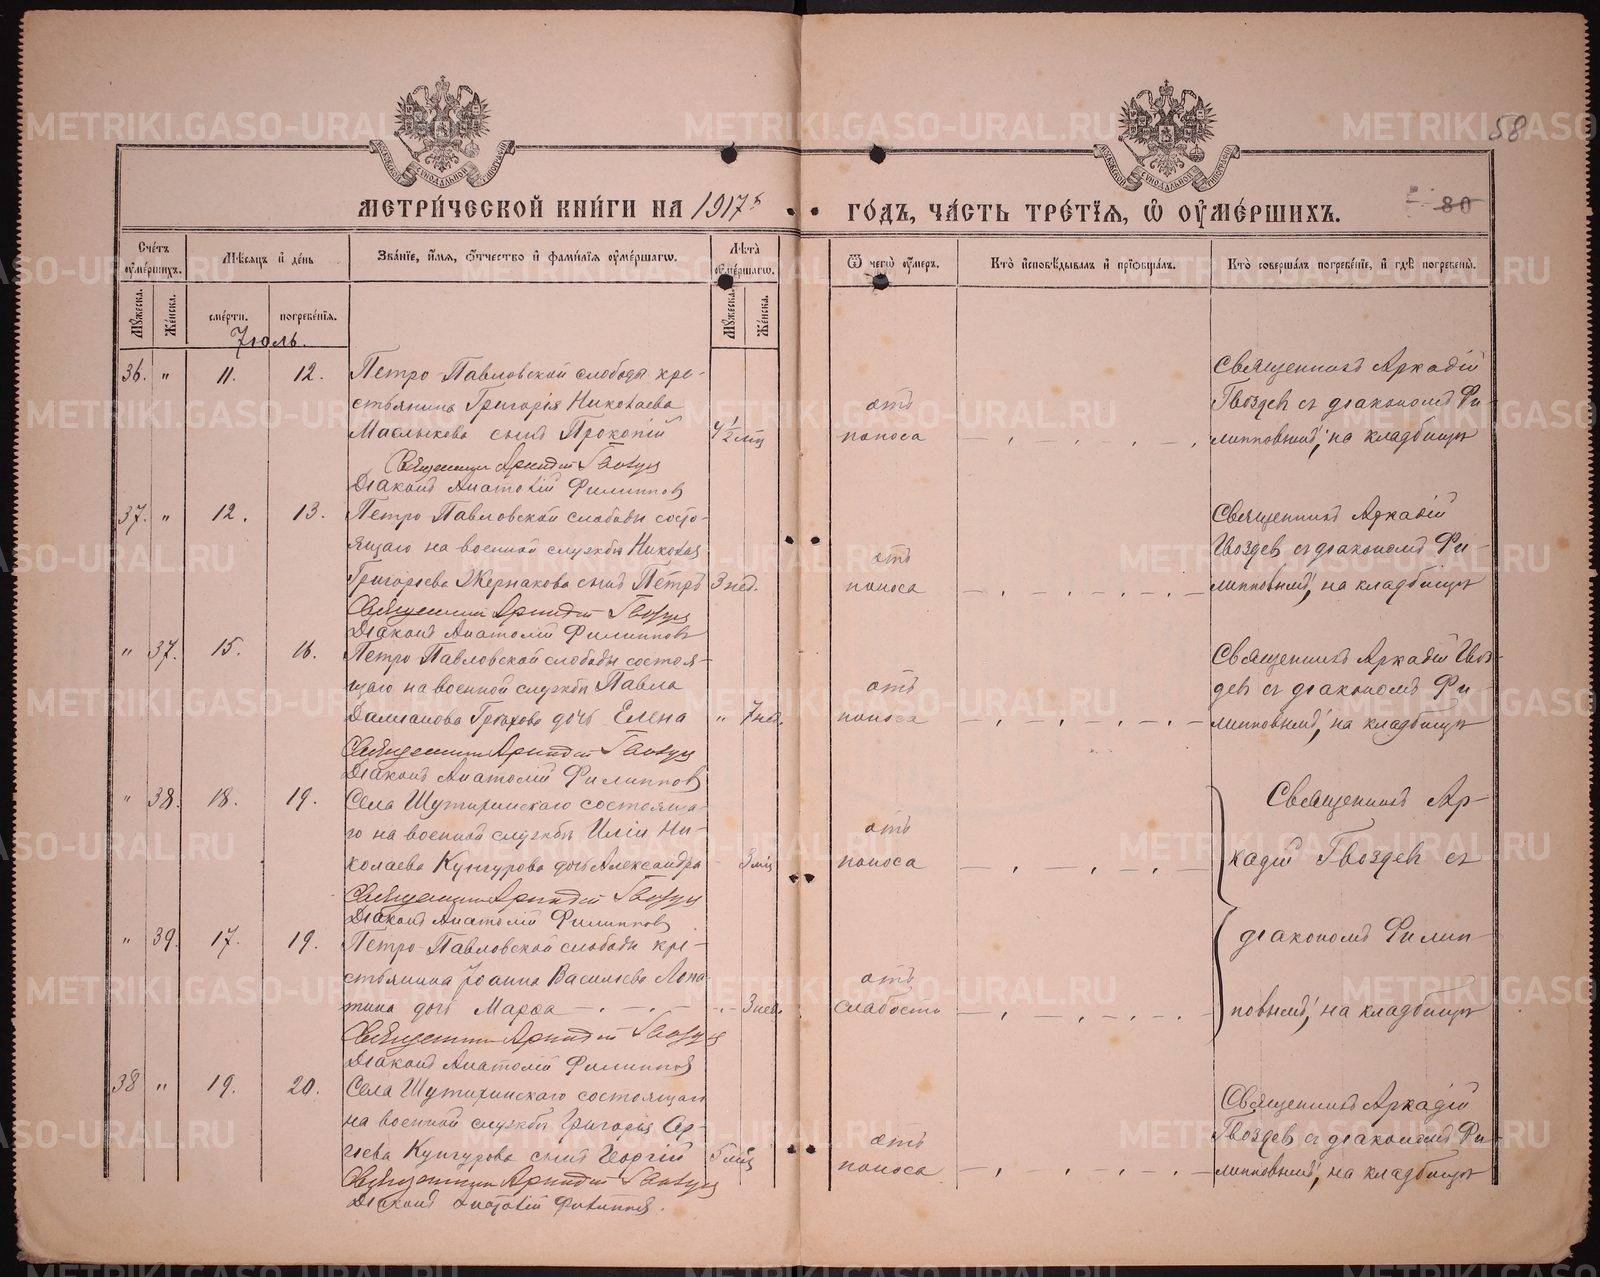 58
МЕТРИЧЕСКОЙ КНИГИ НА 1917 й
ГОДЪ, ЧАСТЬ ТРЕТІЯ, Ѿ ОУМЕРШИХЪ.
80
Счетъ оумершихъ.
Мѣсяцъ и день
Званіе, имя, ѿчество и фамилія оумершагѡ.
Лѣта оумершагѡ.
Ѿ чегѡ оумеръ.
Кто исповѣдывалъ и пріобщалъ.
Кто совершалъ погребеніе, и гдѣ погребены.
Мужеска.
Женска.
смерти.
погребенія.
Мужеска.
Женска.
Іюль.
36. " 11. 12. Петро-Павловской слободы кре-
стьянина Григорія Николаева
Маслыкова сынъ Прокопій 4 1/2 мц
отъ
поноса
Священникъ Аркадій
Гвоздев съ діакономъ Фи-
липповымъ, на кладбищѣ
Священникъ Аркадій Гвоздев
Діаконъ Анатолій Филиппов
37. " 12. 13. Петро Павловской слободы состо-
ящаго на военной службѣ Николая
Григорьева Жернакова сынъ Петръ 3 нед.
отъ
поноса
Священникъ Аркадій
Гвоздев съ діакономъ Фи-
липповымъ, на кладбищѣ
Священникъ Аркадій Гвоздев
Діаконъ Анатолій Филиппов
" 37. 15. 16. Петро Павловской слободы состоя-
щаго на военной службѣ Павла
Дамианова дочь Елена " 7 нед.
отъ
поноса
Священникъ Аркадій Гвоз-
дев съ діакономъ Фи-
липповымъ, на кладбищѣ
Священникъ Аркадій Гвоздев
Діаконъ Анатолій Филиппов
" 38. 18. 19. Села Шутихинскаго состояща-
го на военной службѣ Иліи Ни-
колаева Кунгурова дочь Александра - 3 мц
отъ
поноса
Священникъ Ар-
кадій Гвоздев съ
Священникъ Аркадій Гвоздев
Діаконъ Анатолій Филиппов
" 39. 17. 19. Петро-Павловской слободы кре-
стьянина Іоанна Васильева Лопа-
тина дочь Марѳа 3 нед.
отъ
слабости
діакономъ Филип
повымъ, на кладбищѣ
Священникъ Аркадій Гвоздев
Діаконъ Анатолій Филиппов
38 " 19. 20. Села Шутихинскаго состоящаго
на военной службѣ Григорія Сер-
гѣева Кунгурова сынъ Георгій 5 мц
отъ
поноса
Священникъ Аркадій
Гвоздев съ діакономъ Фи-
липповымъ, на кладбищѣ
Священникъ Аркадій Гвоздев
Діаконъ Анатолій Филиппов.
METRIKI.GASO-URAL.RU